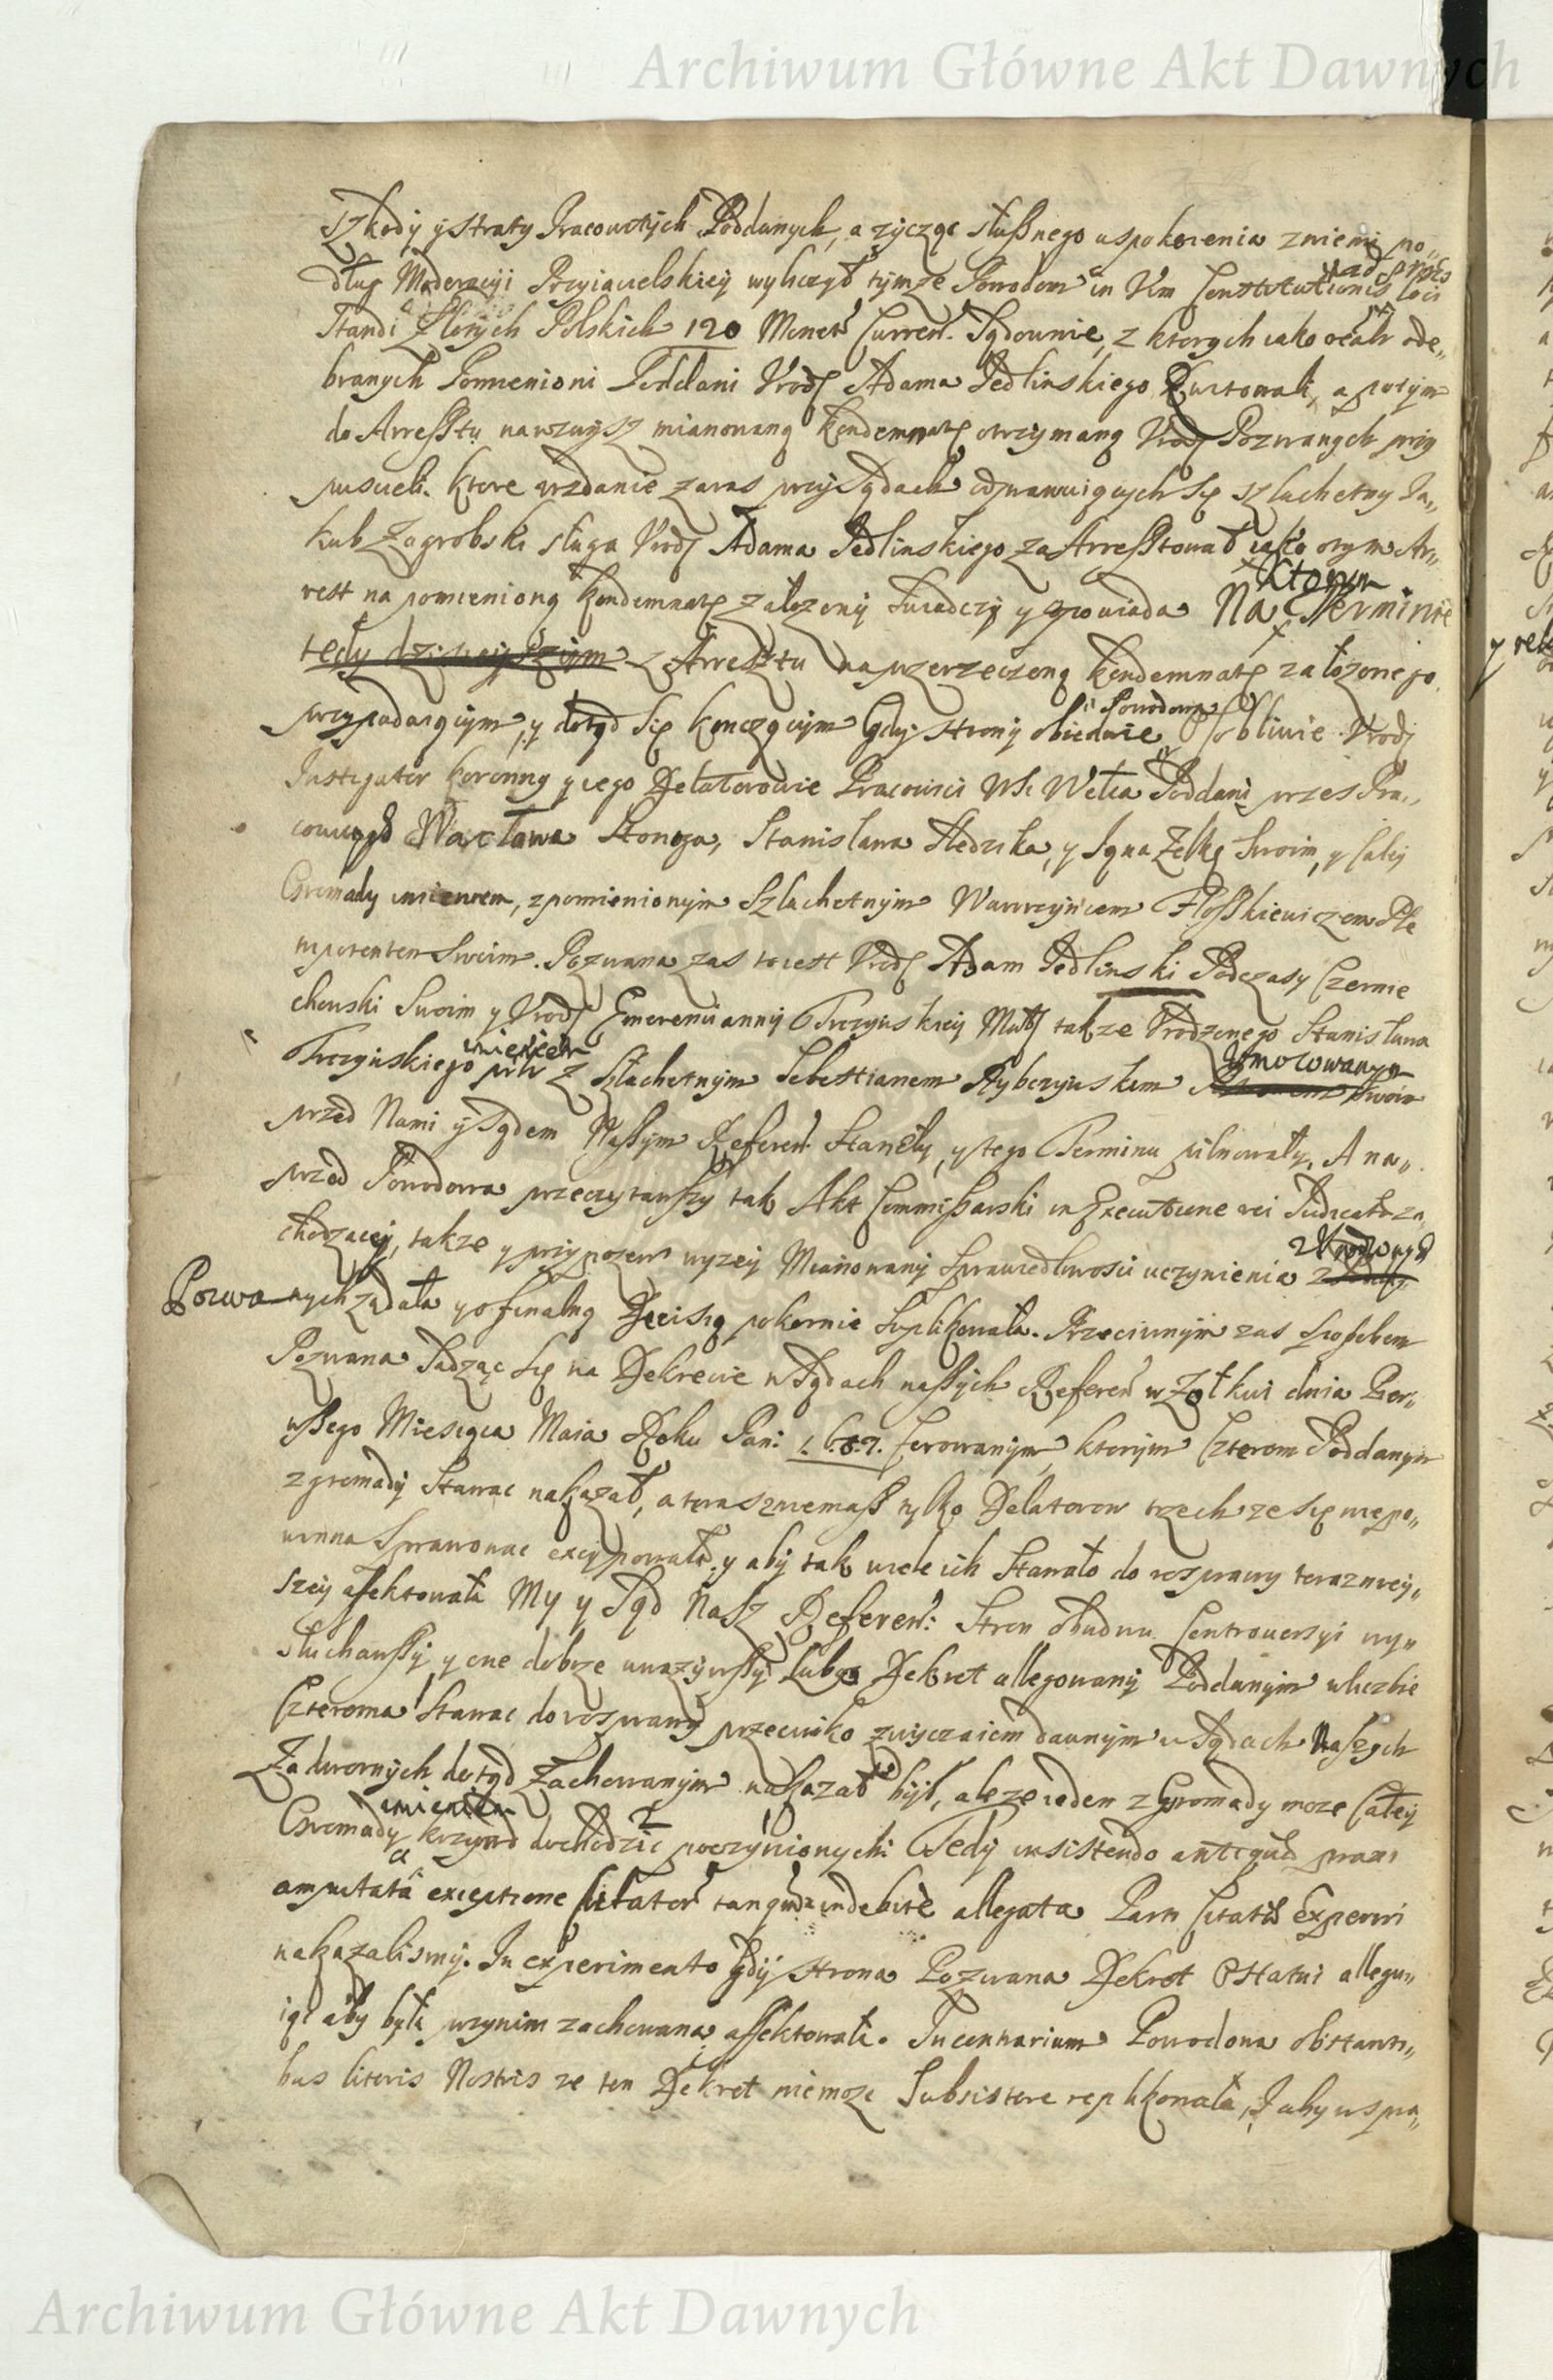 Archiwum Główne Akt Dawnych
Szkody y straty Pracowitych Poddanych, a zycząc słusznego uspokoienia z niemi po„
dług Moderacyi Przyiacielskiey wyliczył tymze Powodom in Vim Constitutionis loci
Standi Złotych Polskich 120 Monetæ Curren. Sądownie, z ktorych iako ode„
branych Pomienioni Poddani Urodz Adama Jedlinskiego Kwitowali, a potym
do Aresztu na wzwysz mianowaną kondemnatę otrzymaną Urodz Pozwanych przy
puscieli. ktore wzdanie zaraz przy Sądach odprawuiących się Szlachetny Ja„
kub Zagrobski sługa Urodz Adama Jedlinskiego zaArresztował iako o tym Ar„
rest na pomienioną kondemnatę załozony swiadczy y opowiada Na Ktorym Terminie
tedy dzisieyszym z Arresztu na przerzeczoną kondemnatę załozonego
przypadaiącym, y dotąd się kończącym Gdy strony obiedwie Powodowa Osobliwie Urodz
Instigator koronny y iego Delatorowie Pracowici Wsi Wełcza Poddani przez Pra„
cowitych Wacława Stonoga, Stanisława Sledzika, y Igna Zelkę Swoim, y całey
Gromady imieniem, z pomienionym Szlachetnym Wawrzyńcem Flosskiewiczem Ple
nipotentem Swoim. Pozwana zas to iest Urodz Adam Jedlinski Podczasy Czernie
chowski Swoim y Urodz Emerencianny Trczynskiey Małż takze Urodzonego Stanisława
Trczynskiego imieniem z Szlachetnym Sebestianem Rybczynskim Umocowanym Swoim
przed Nami y Sądem Naszym Referen. Staneły, y tego Terminu pilnowały. A na„
przod Powodowa przeczytawszy tak Akt Commissarski in Executione rei Judicatæ za
chodzacey, takze y przypozew wyzey Mianowany Sprawiedliwosci uczynienia z Urodzonych
Pozwanych żądała y o finalną Decisią pokornie Suplikowała. Przeciwnym zas sposobem
Pozwana Sadząc się na Dekrecie w Sądach naszych Referen w Zołkwi dnia Pier„
wszego Miesiąca Maia Roku Pani 1687. ferowanym, ktorym Czterom Poddanym
z gromady Stawac nakazał, a teraz niemasz tylko Delatorow trzech ze się niepo„
winna Sprawowac excypowała, y aby tak wiele ich Stawało do rozprawy terazniey„
szey afektowała My y Sąd Nasz Referen: Stron obudwu Controversyi wy„
słuchawszy y one dobrze uwazywszy Lubo Dekret allegowany Poddanym w liczbie
Czteroma Stawac do rozprawy przeciwko zwyczaiem dawnym w Sądach Naszych
Zadwornych dotąd Zachowanym nakazał był, ale ze ieden z Gromady moze całey
Gromady imieniem krzywd dochodzić poczynionych: Tedy insistendo antiquæ praxi
amputata exceptione Citator tanquam indebite allegata Parti Citatæ Experiri
nakazalismy. In experimento gdy strona Pozwana Dekret Ostatni allegu„
iąc aby była przy nim zachowana affektowała. In contrarium Powodowa obstanti„
bus literis Nostris ze ten Dekret niemoze Subsistere replikowała, I aby w spra„
Archiwum Główne Akt Dawnych